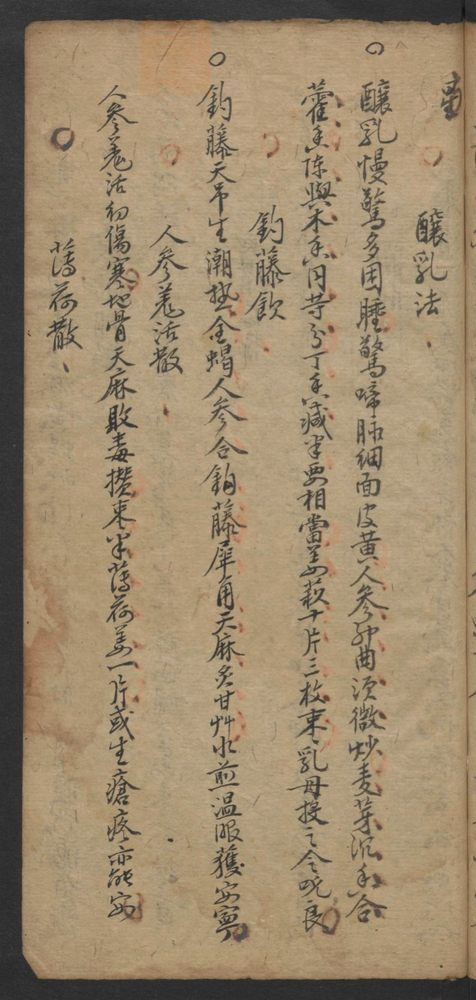 釀乳法
釀乳慢驚多困睡驚啼脉細面皮黃人參神曲須微炒麦芽沉香合
藿香陳與木香內苓分丁香減半要相當姜
十片三枚棗乳母授之令吮良
鈎藤飲
鈎藤天吊生潮热全蝎人參合鈎藤犀角天麻炙甘艸水煎温服獲安寧
人參羌活散
人參羌活初傷寒地骨天麻敗毒攢棗半薄荷姜一片或生瘡疼亦能安
薄荷散